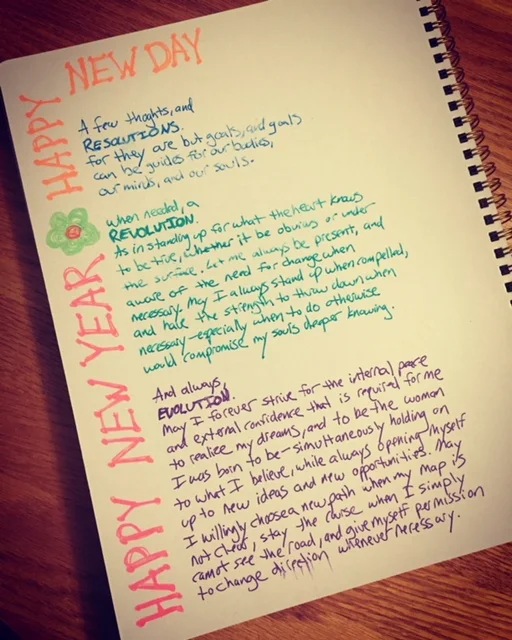 HAPPY NEW DAY
HAPPY NEW YEAR
A few thoghts, and
RESOLUTIONS.
for they are but goals, and goals
can be guides for our bodies,
our minds, and our souls.
when needed, a
REVOLUTION.
As in standing up for what the heart knows
to be true, whether it be obvious or under
the surface. Let me always be present, and
aware of the need for change when
necessary. May I always stand up when compelled,
and have the strength to throw down when
necessary-especially when to do otherwise
would compromise my souls deeper knowing.
And always,
EVOLUTION.
May I forever strive for the internal peace
and external confidence that is required for me
to realize my dreams, and to be the woman
I was born to be-simultaneously holding on
to what I believe, while always opening myself
up to new ideas and new opportunities. May
I willingly choose a new path when my map is
not clear, stay the course when I simply
cannot see the road, and give myself permission
to change direction whenever necessary.